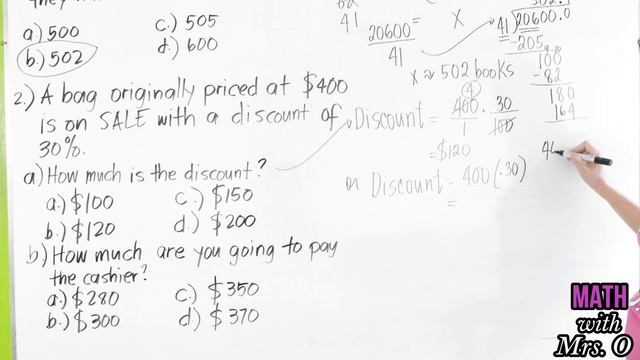 they
a) 500
b.) 502
c.) 505
d.) 600
41
20600 =
41
X
x ≈ 502 books
502.
41 20600.0
-205
100
-82
180
164
2.) A bag originally priced at $400
is on SALE with a discount of
30%.
a) How much is the discount?
a.) $100
b.) $120
c.) $150
d.) $200
b.) How much are you going to pay
the cashier?
a.) $280
b.) $300
c.) $350
d.) $370
Discount = 400/1 · 30/100
4
= $120
or Discount = 400(.30)
=
MATH
with
Mrs. O